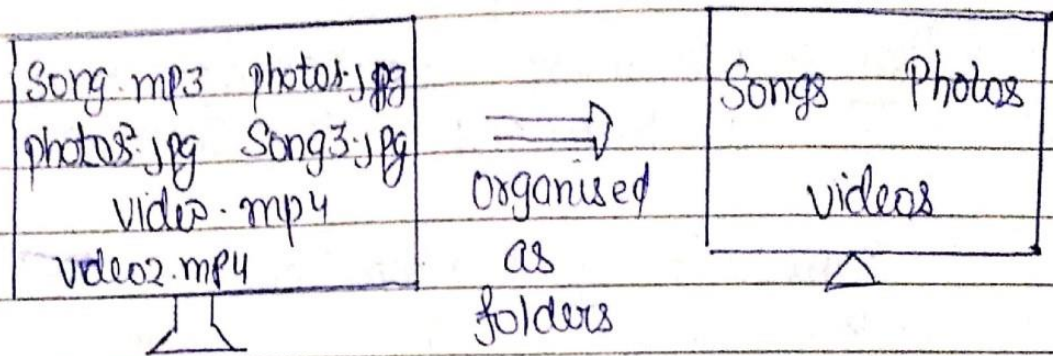 Song.mp3 photos.jpg
photos2.jpg Song3.jpg
video.mp4
video2.mp4
organised
as
folders
Songs Photos
videos